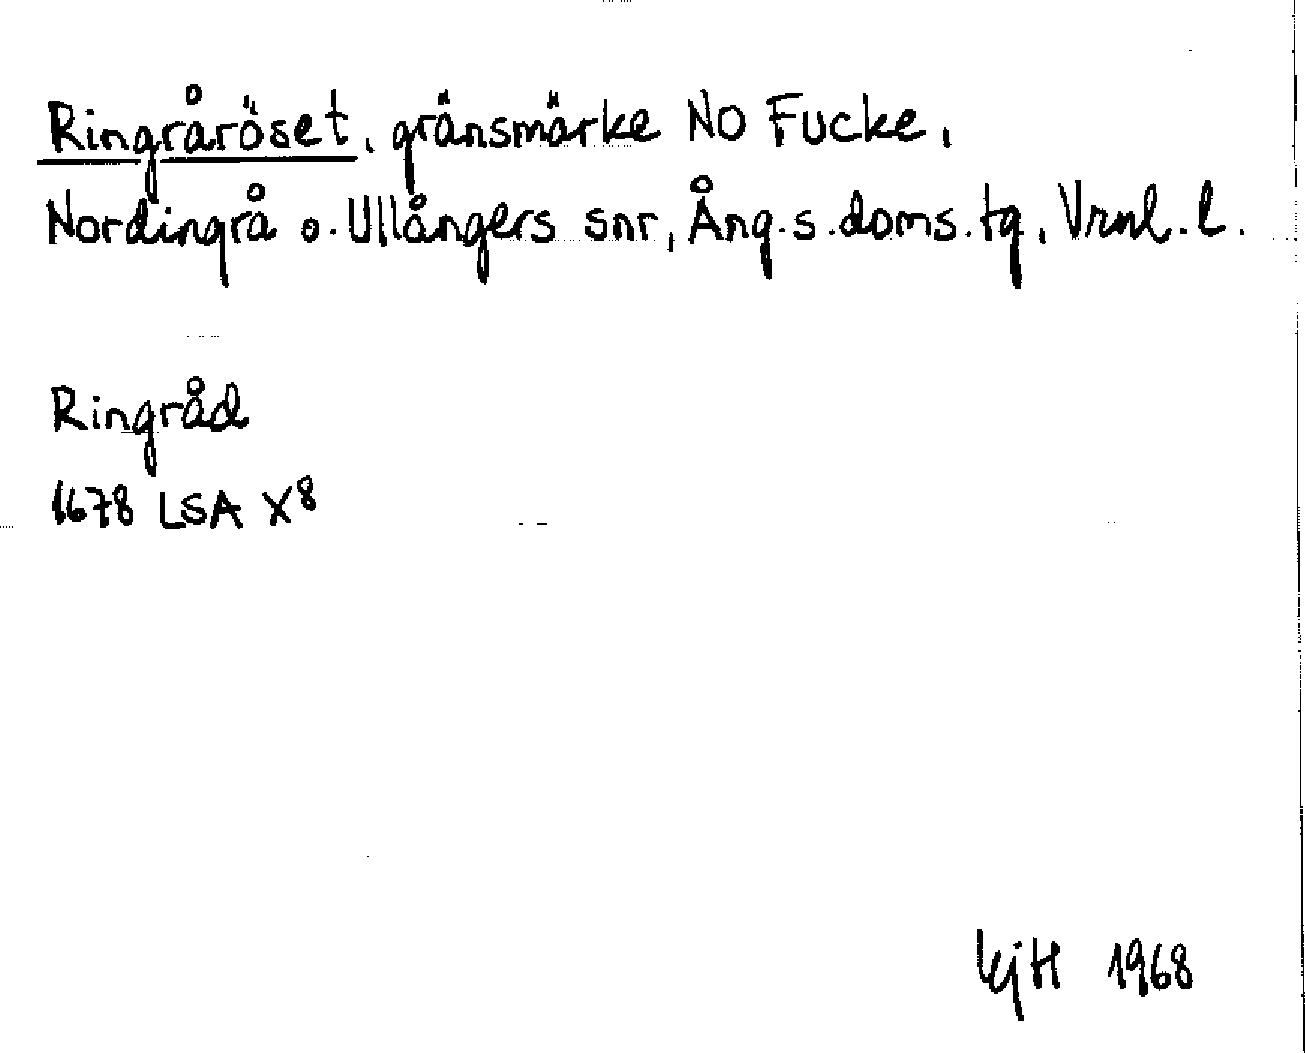 Ringråröset, gränsmärke NO Fucke,
Nordingrå o. Ullångers snr, Ång.s.doms.tg, Vrnl.l.
Ringråd
1678 LSA X8
kjH 1968